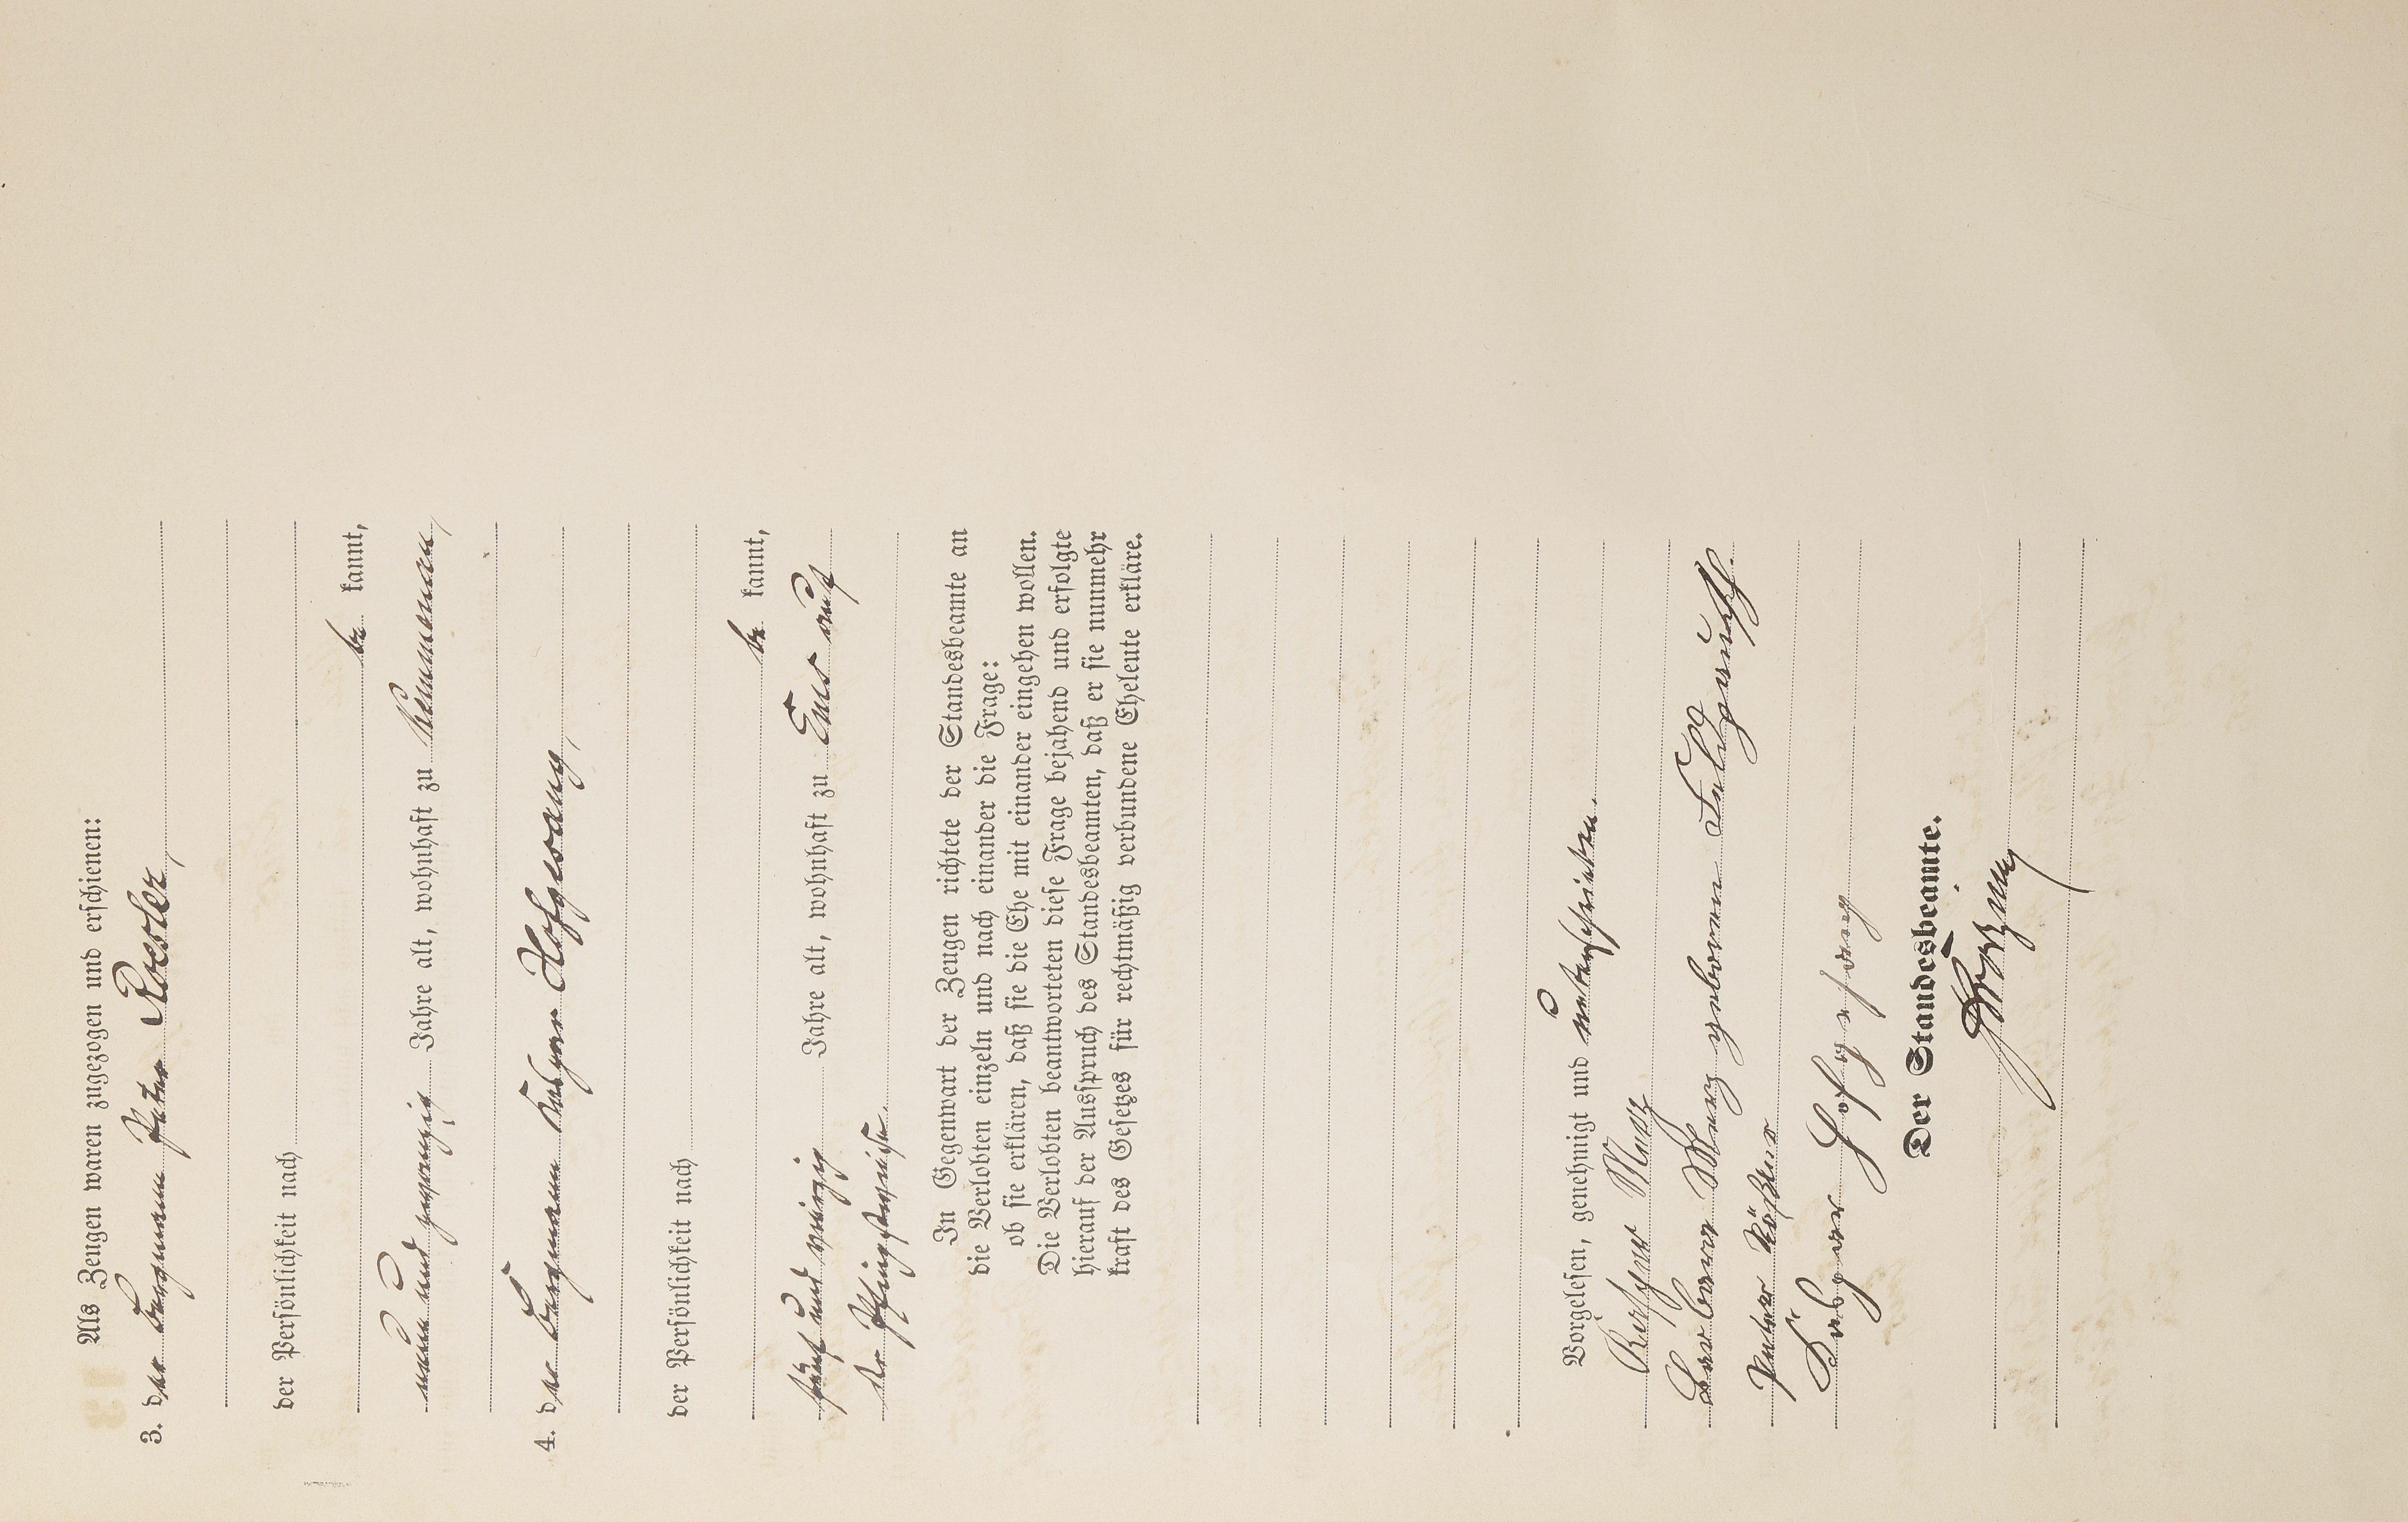 Als Zeugen waren zugezogen und erschienen:
3. der Bergmann Peter Roesler,
der Persönlichkeit nach
be kannt,
neun und zwanzig Jahre alt, wohnhaft zu Kemmenau,
4. der Bergmann Kaspar Hofgesang,
der Persönlichkeit nach
be kannt,
fünf und vierzig Jahre alt, wohnhaft zu Ems auf
der Pfingstwiese.
In Gegenwart der Zeugen richtete der Standesbeamte an
die Verlobten einzeln und nach einander die Frage:
ob sie erklären, daß sie die Ehe mit einander eingehen wollen.
Die Verlobten beantworteten diese Frage bejahend und erfolgte
hierauf der Ausspruch des Standesbeamten, daß er sie nunmehr
kraft des Gesetzes für rechtmäßig verbundene Eheleute erkläre.
Vorgelesen, genehmigt und unterschrieben.
Merz
Barbara Merz geborene
Peter Rößler
Kasper Hofgesang
Der Standesbeamte.